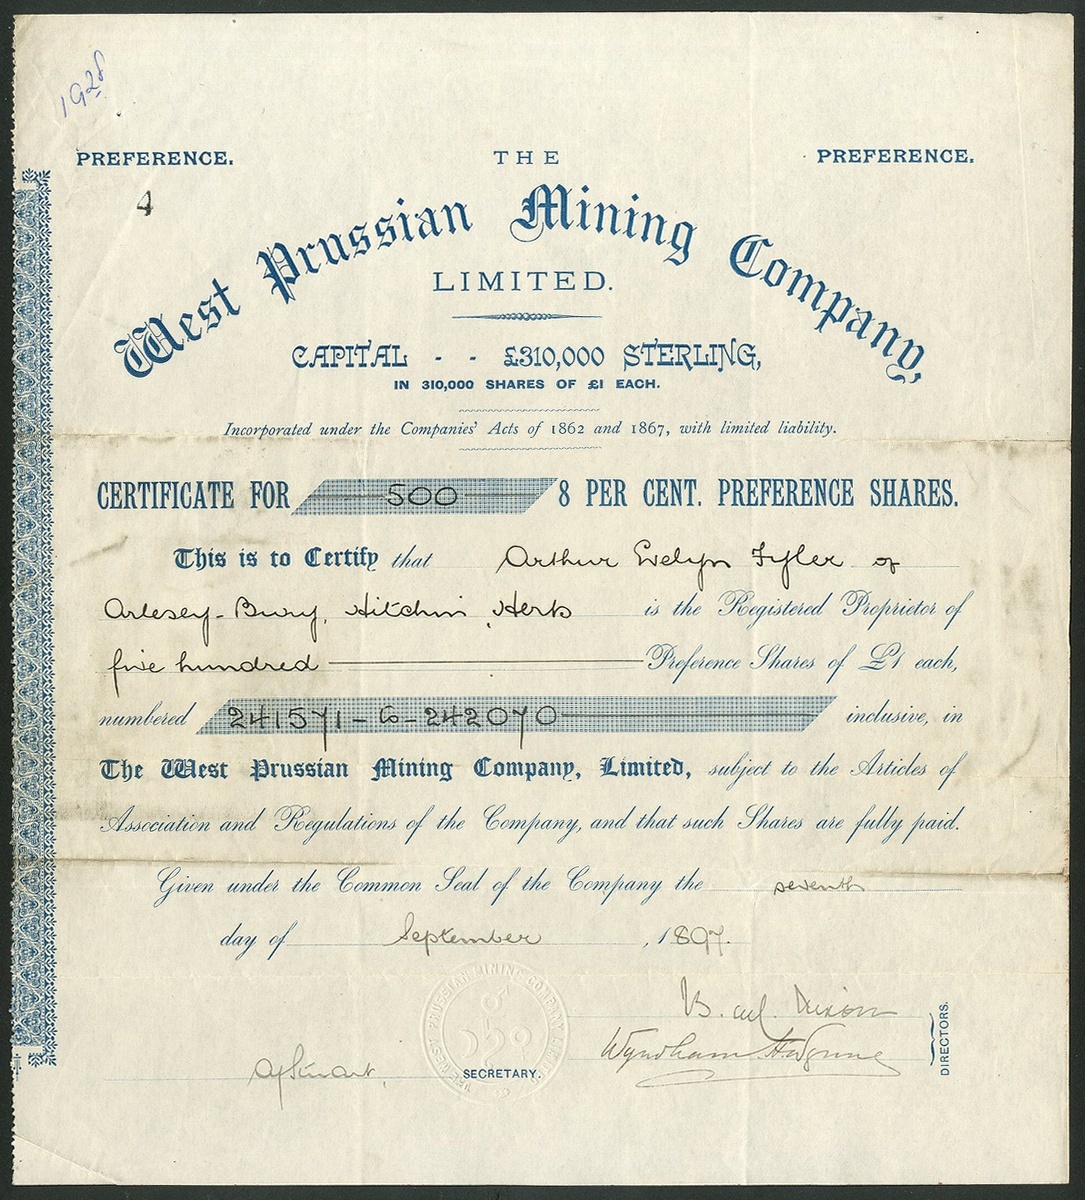 1928
PREFERENCE. THE PREFERENCE.
4
West Prussian Mining Company,
LIMITED.
CAPITAL - - £310,000 STERLING,
IN 310,000 SHARES OF £1 EACH.
Incorporated under the Companies' Acts of 1862 and 1867, with limited liability.
CERTIFICATE FOR 500 8 PER CENT. PREFERENCE SHARES.
This is to Certify that Arthur Evelyn Fyler of
Arlesey-Bury, Hitchin, Herts is the Registered Proprietor of
five hundred Preference Shares of £1 each,
numbered 241571-to-242070 inclusive, in
The West Prussian Mining Company, Limited, subject to the Articles of
Association and Regulations of the Company, and that such Shares are fully paid.
Given under the Common Seal of the Company the seventh
day of September, 1897.
THE WEST PRUSSIAN MINING COMPANY LIMITED
Dixon
Wyndham
DIRECTORS.
SECRETARY.